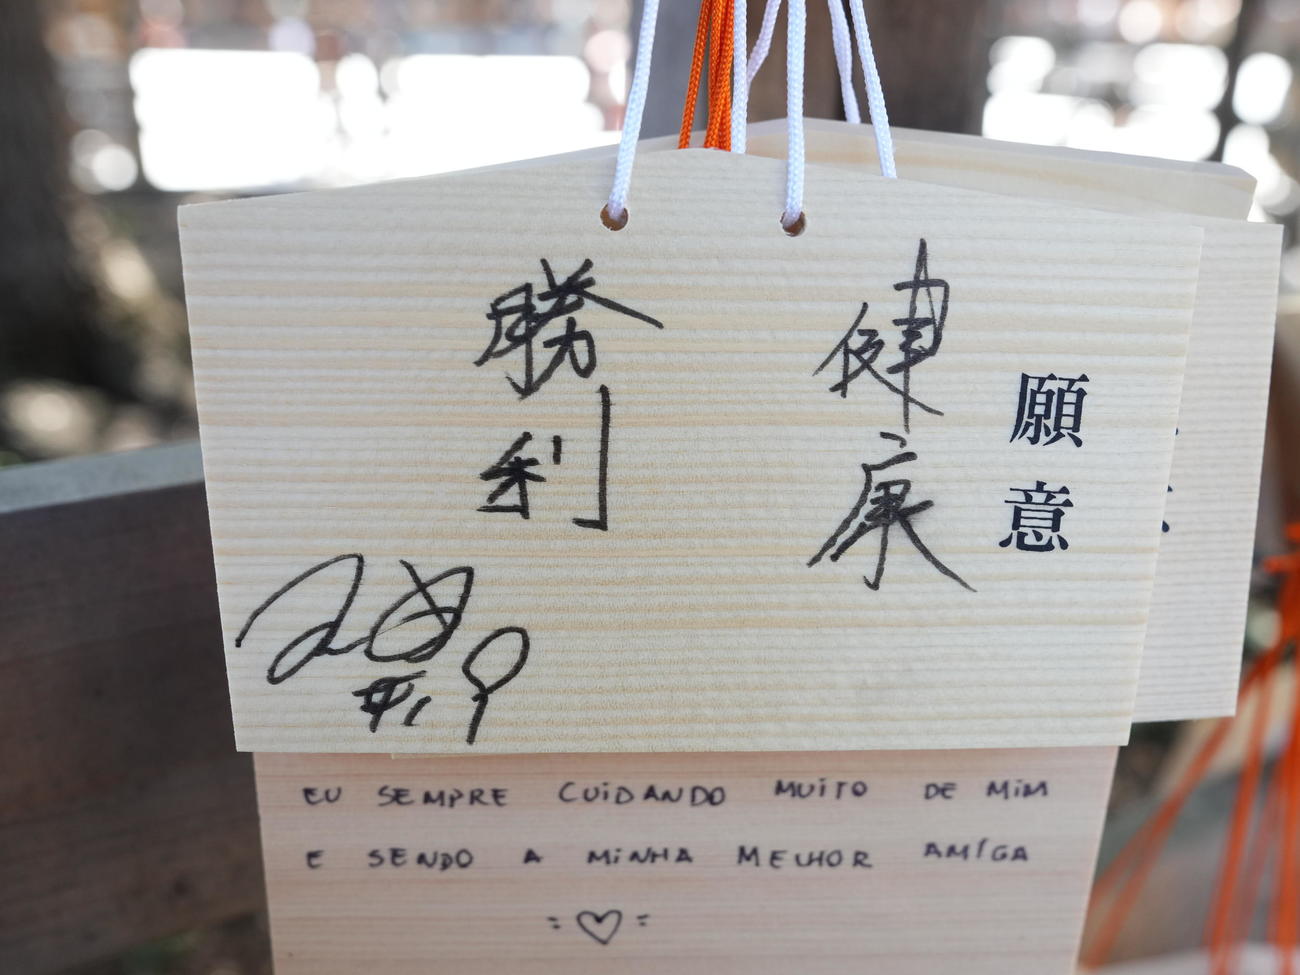 願意
健康
勝利
EU SEMPRE CUIDANDO MUITO DE MIM
E SENDO A MINHA MELHOR AMIGA